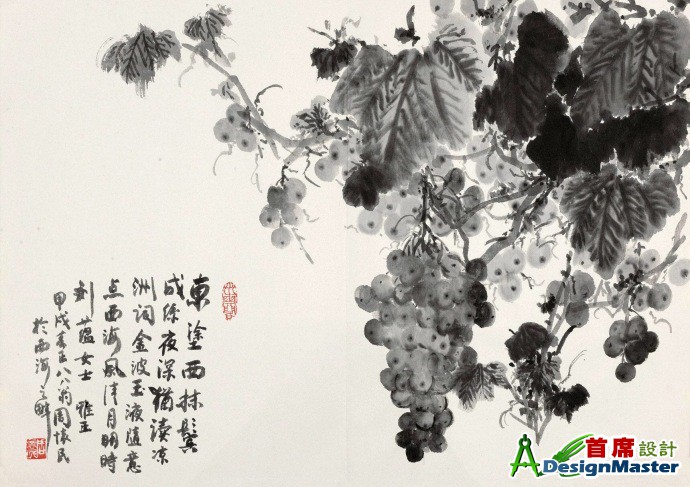 東塗西抹鬓
成絲夜深猶讀凉
洲词金波玉液随意
点西海風清月明時
剑蕴女士 雅正
甲戌春正八八翁周怀民
於西海之畔
首席設計
DesignMaster